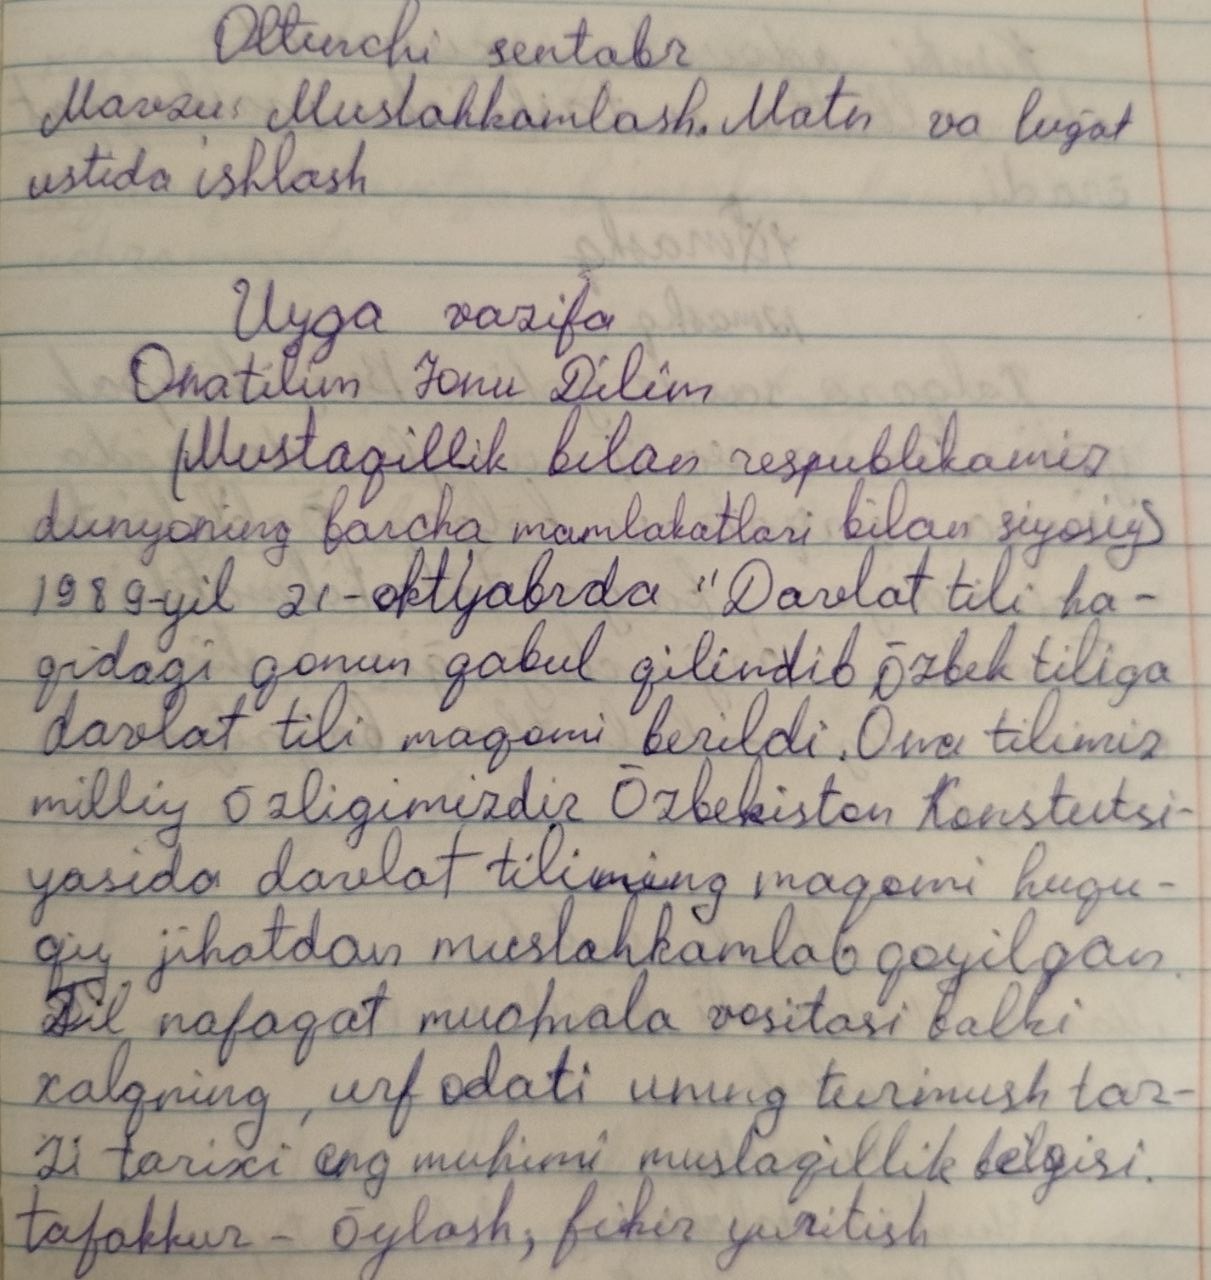 Oltinchi sentabr
Mavzu: Mustahkamlash. Matn va luğat
ustida ishlash
Uyga vazifa
Onatilim Jonu Dilim
Mustaqillik bilan respublikamiz
dunyoning barcha mamlakatlari bilan siyosiy
1989-yil 21-oktyabrda "Davlat tili ha-
qidagi qonun qabul qilindib ōzbek tiliga
davlat tili maqomi berildi. Ona tilimiz
milliy ōzligimizdir Ōzbekiston Konstutsi-
yasida davlat tilining maqomi huqu-
qiy jihatdan mustahkamlab qoyilgan.
Til nafaqat muomala vositasi balki
xalqning, urf odati uning turmush tar-
zi tarixi eng muhimi mustaqillik belgisi.
tafakkur - ōylash, fikir yuritish